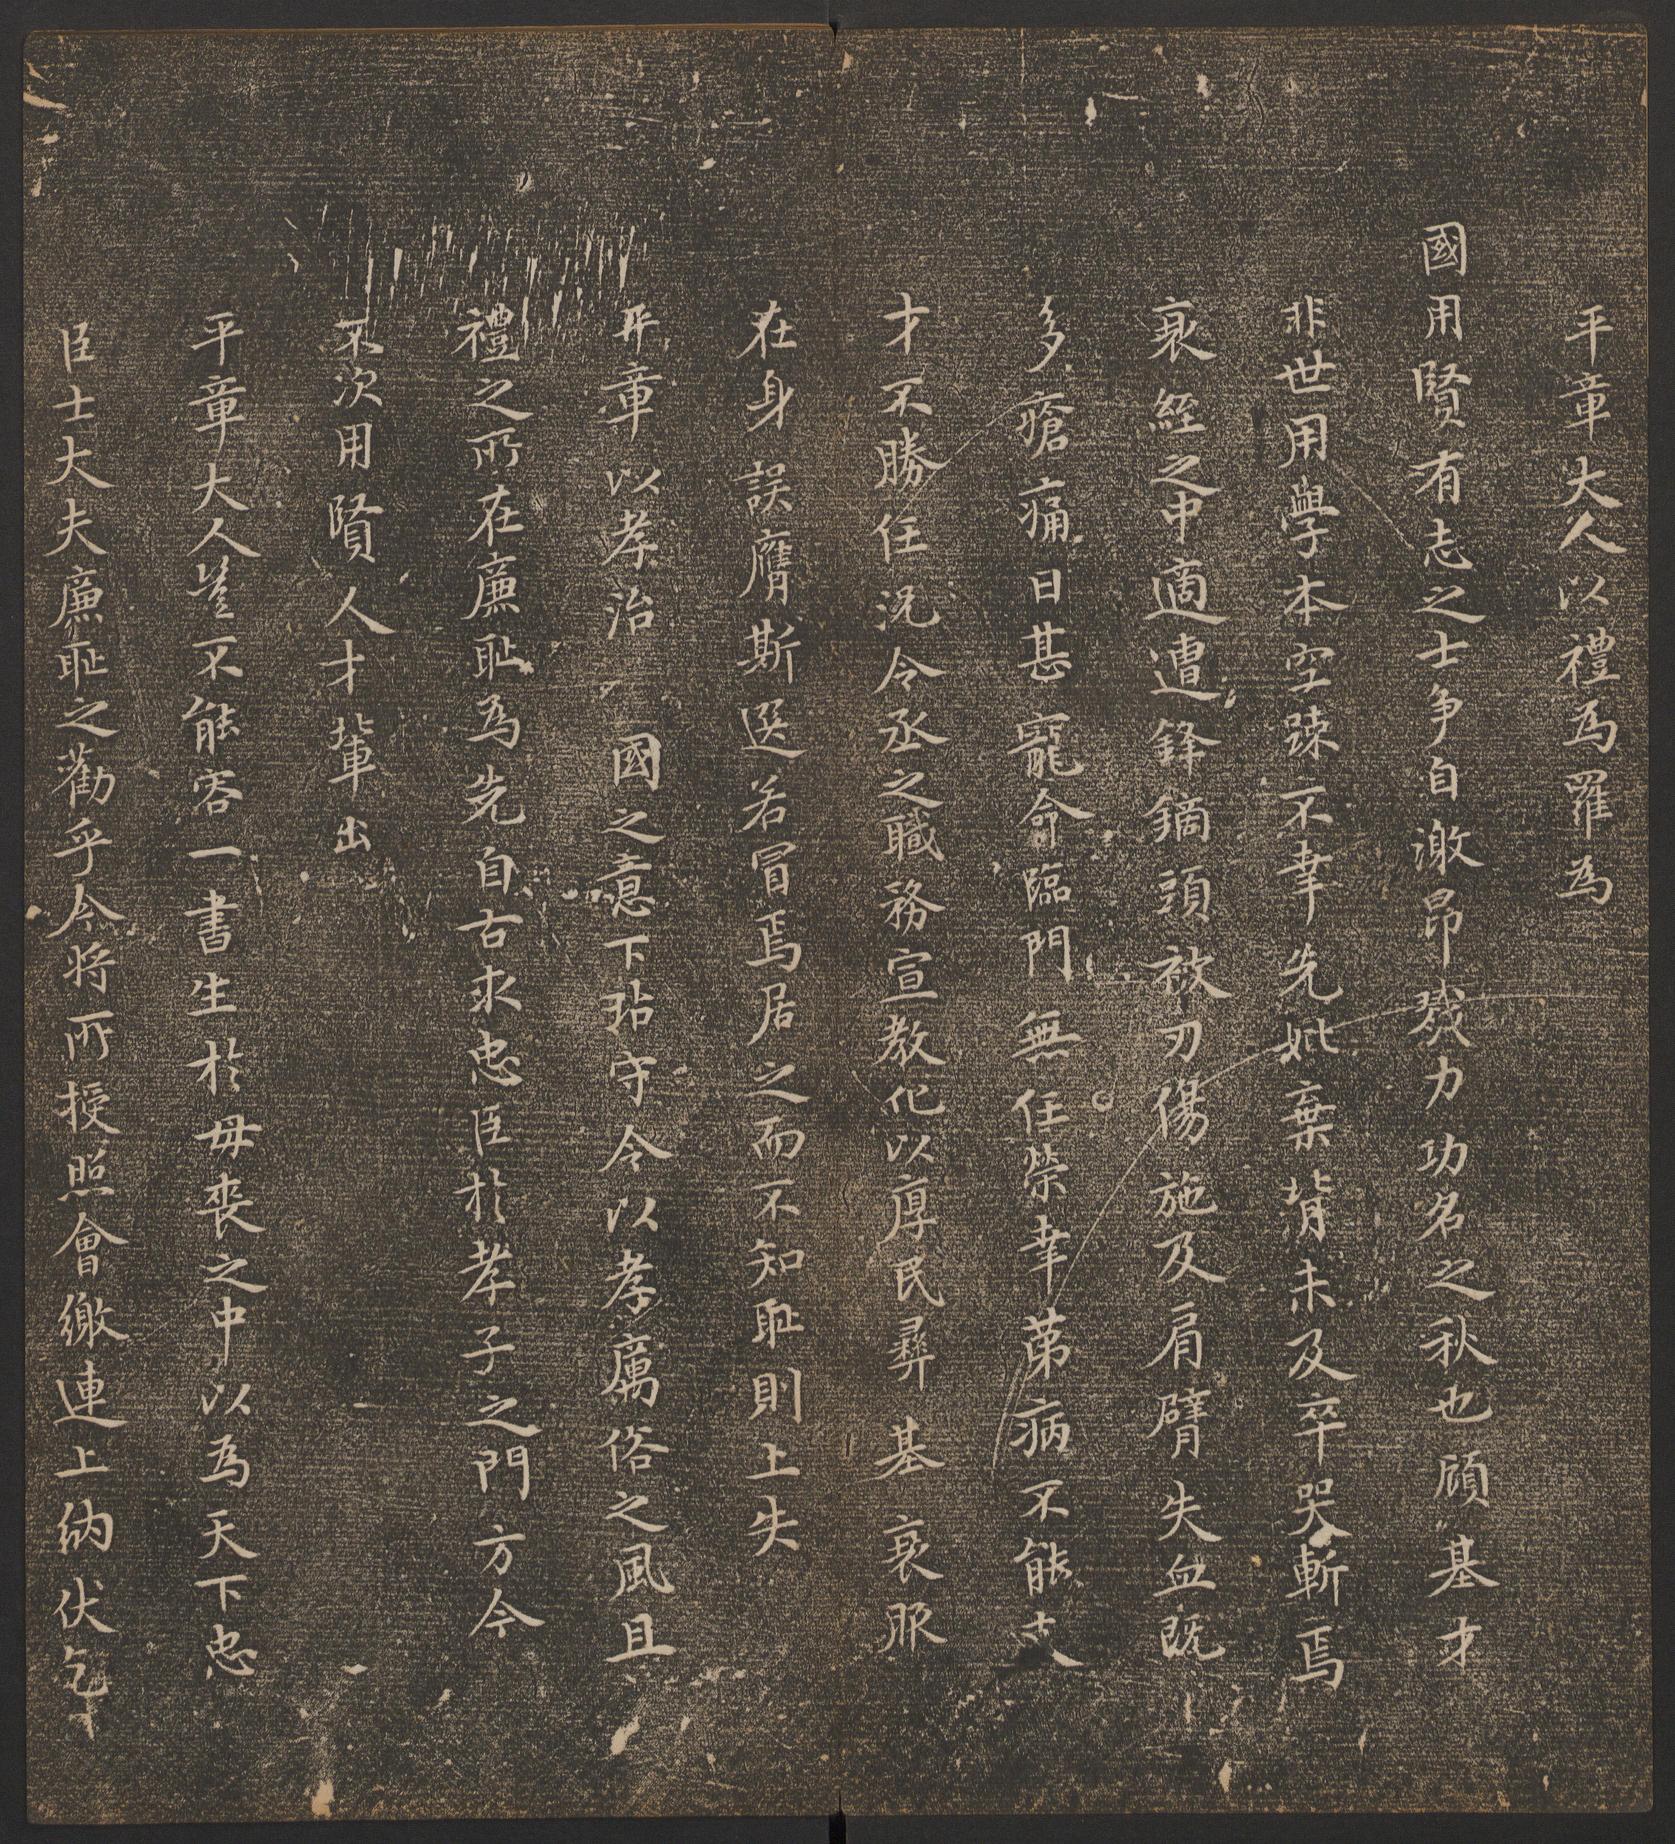 平章大人以禮為羅為
國用賢有志之士爭自激昂殘力功名之秋也顧基才
非世用學本空踈不幸先妣棄背未及卒哭斬焉
衰絰之中適遭鋒鏑頭被刃傷施及肩臂失血既
多瘡痛日甚寵命臨門無任榮幸苐病不能支
才不勝任況令丞之職務宣教化以厚民彛基衰服
在身誤膺斯選若冒焉居之而不知恥則上失
平章以孝治國之意下玷守令以孝厲俗之風且
禮之所在廉恥為先自古求忠臣於孝子之門方今
不次用賢人才輩出
平章大人豈不能容一書生於母喪之中以為天下忠
臣士大夫廉恥之勸乎今將所授照會繳連上納伏乞